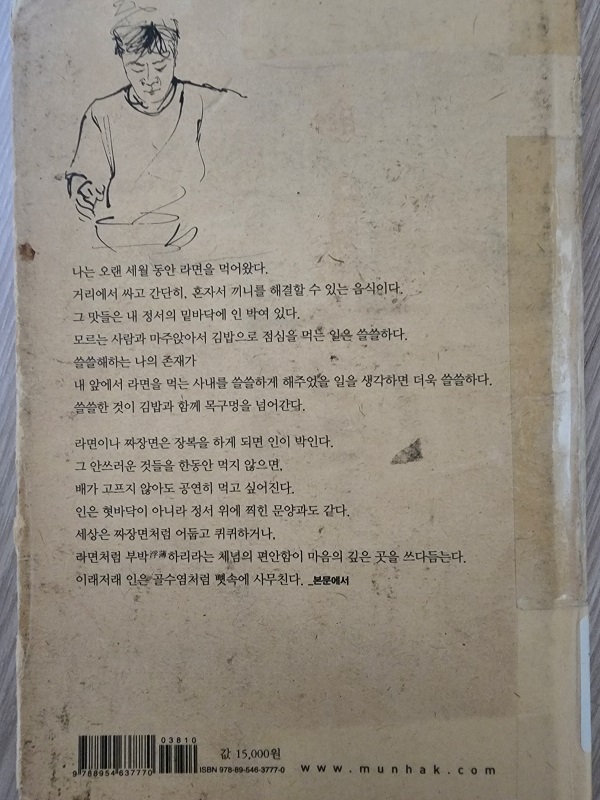 나는 오랜 세월 동안 라면을 먹어왔다.
거리에서 싸고 간단히, 혼자서 끼니를 해결할 수 있는 음식이다.
그 맛들은 내 정서의 밑바닥에 인 박여 있다.
모르는 사람과 마주앉아서 김밥으로 점심을 먹는 일은 쓸쓸하다.
쓸쓸해하는 나의 존재가
내 앞에서 라면을 먹는 사내를 쓸쓸하게 해주었을 일을 생각하면 더욱 쓸쓸하다.
쓸쓸한 것이 김밥과 함께 목구멍을 넘어간다.
라면이나 짜장면은 장복을 하게 되면 인이 박인다.
그 안쓰러운 것들을 한동안 먹지 않으면,
배가 고프지 않아도 공연히 먹고 싶어진다.
인은 혓바닥이 아니라 정서 위에 찍힌 문양과도 같다.
세상은 짜장면처럼 어둡고 퀴퀴하거나,
라면처럼 부박浮薄하리라는 체념의 편안함이 마음의 깊은 곳을 쓰다듬는다.
이래저래 인은 골수염처럼 뼛속에 사무친다. _본문에서
03810
9 788954 637770
값 15,000원
ISBN 978-89-546-3777-0
www.munhak.com